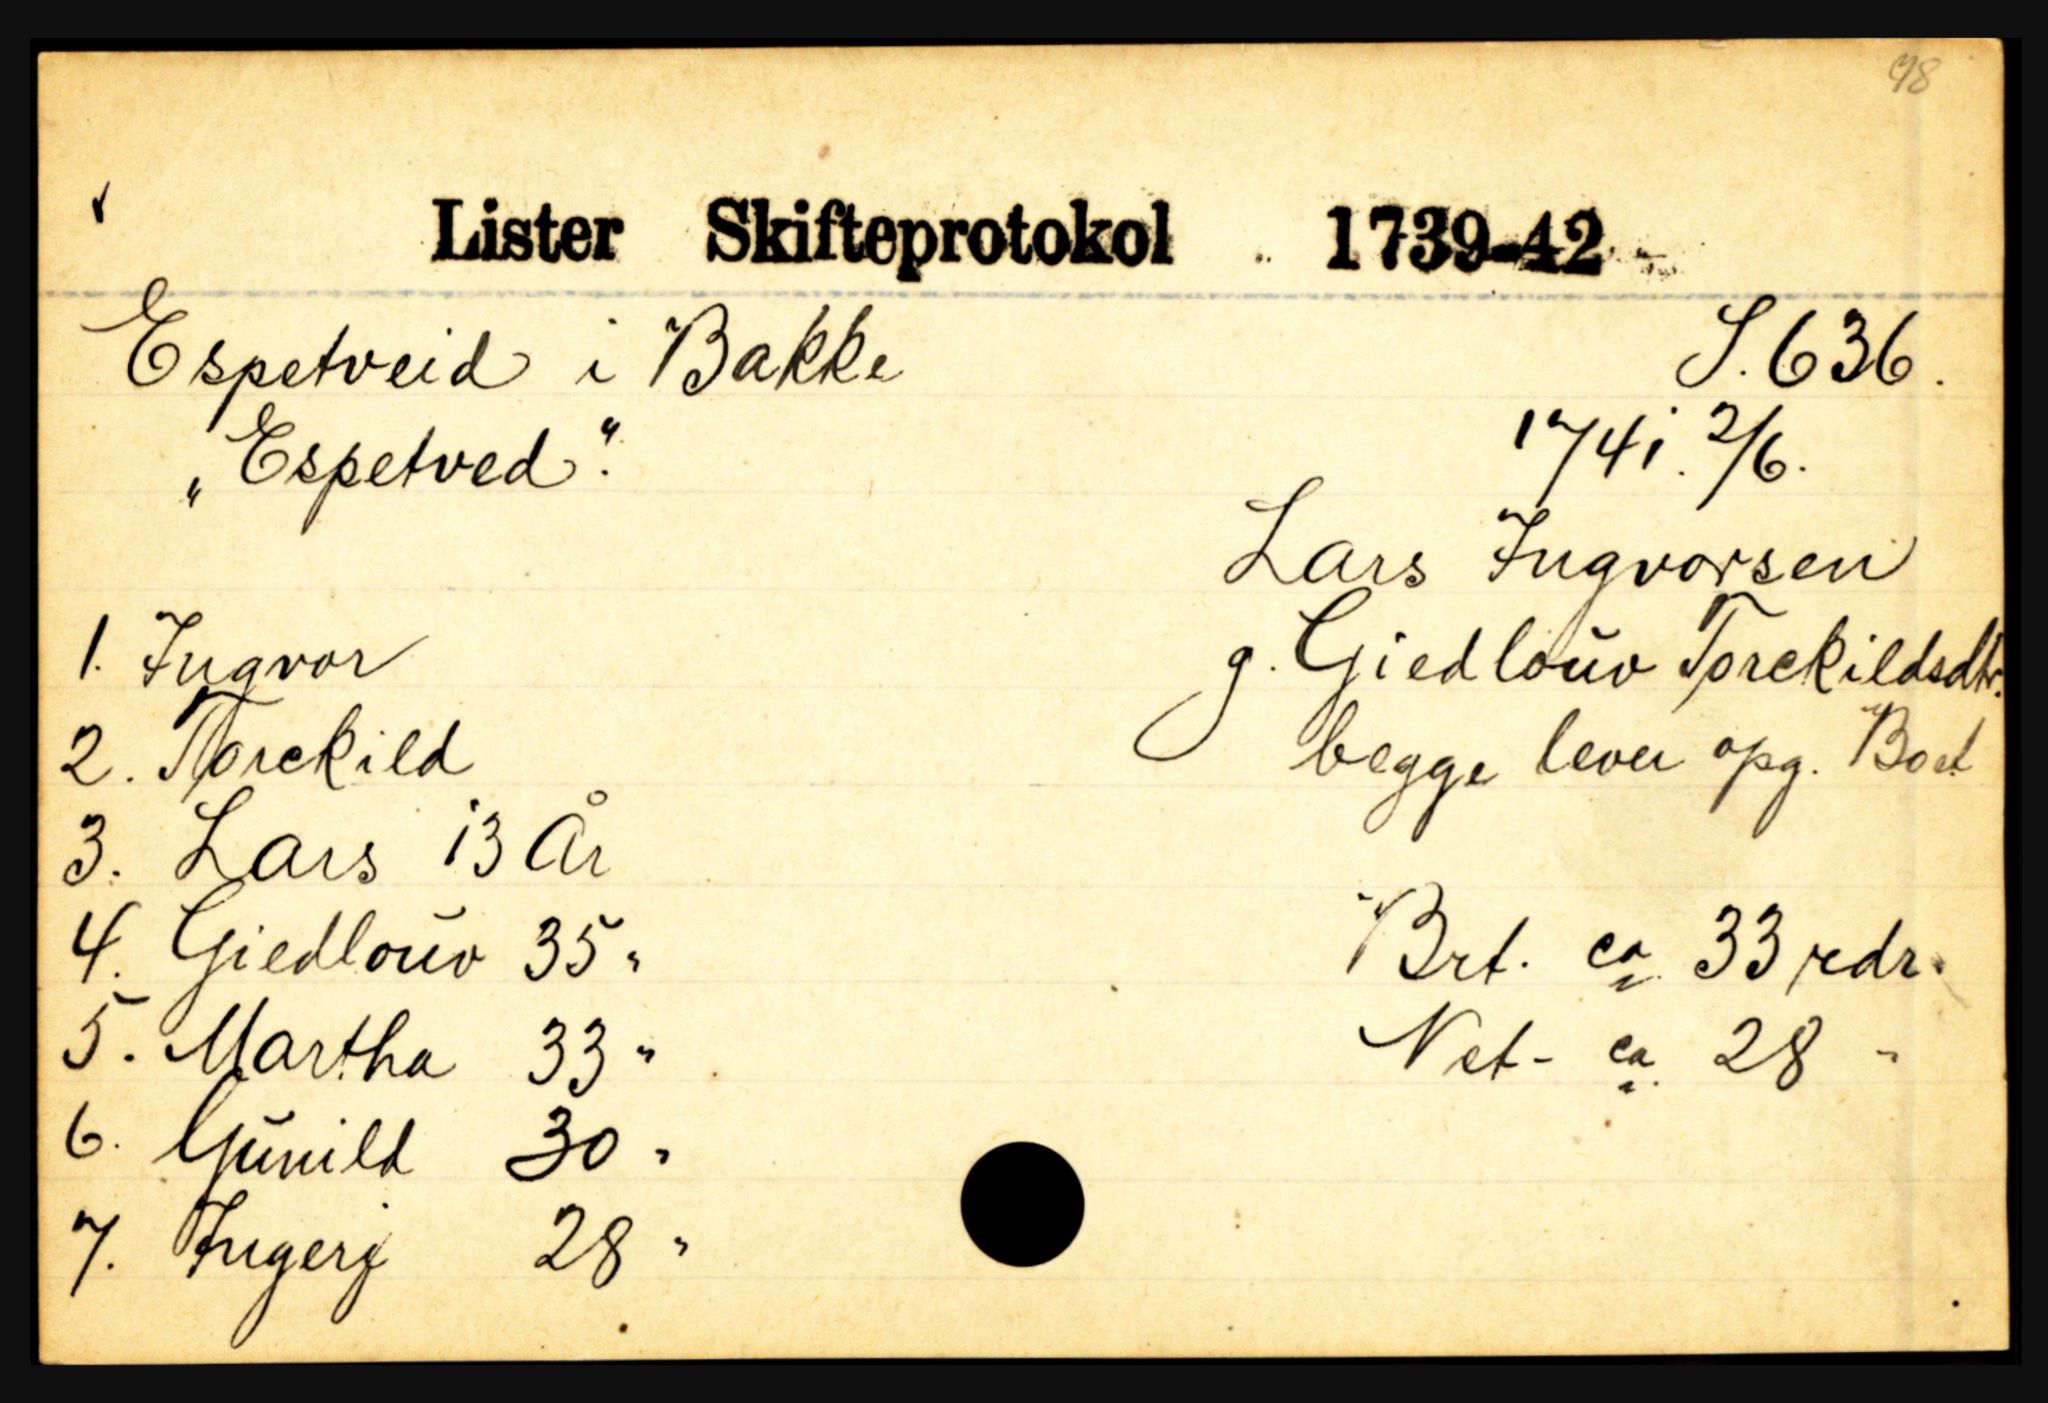 98
Lister Skifteprotokol 1739-42
Espetveid i Bakke S. 636.
„Espetved“. 1741. 2/6.
Lars Ingvorsen
1. Ingvor g. Giedlouv Torckildsdtr.
2. Torckild begge lever opg. Boet
3. Lars 13 År
4. Giedlouv 35 " Brt. ca 33 rdr.
5. Martha 33 " Net- ca 28 "
6. Gunild 30 "
7. Ingerj 28 "